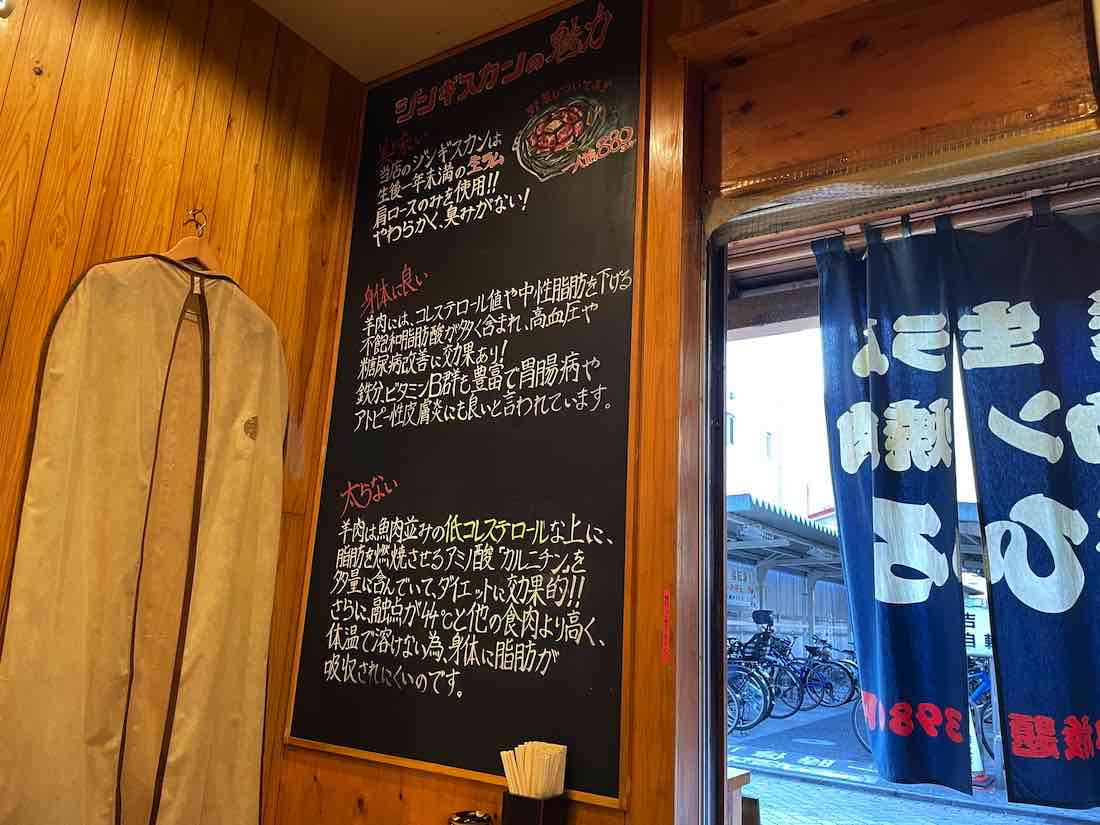 ジンギスカンの魅力
一人前880
当店のジンギスカンは
生後一年未満の生ラム
肩ロースのみを使用!!
やわらかく、臭みがない!
身体に良い
羊肉には、コレステロール値や中性脂肪を下げる
不飽和脂肪酸が多く含まれ、高血圧や
糖尿病改善に効果あり!
鉄分、ビタミンB群も豊富で胃腸病や
アトピー性皮膚炎にも良いと言われています。
太らない
羊肉は魚肉並みの低コレステロールな上に、
脂肪を燃焼させるアミノ酸「カルニチン」を
多量に含んでいて、ダイエットに効果的!!
さらに、融点が44℃と他の食肉より高く、
体温で溶けない為、身体に脂肪が
吸収されにくいのです。
生ラム
カン焼肉
ひろ
放題
398